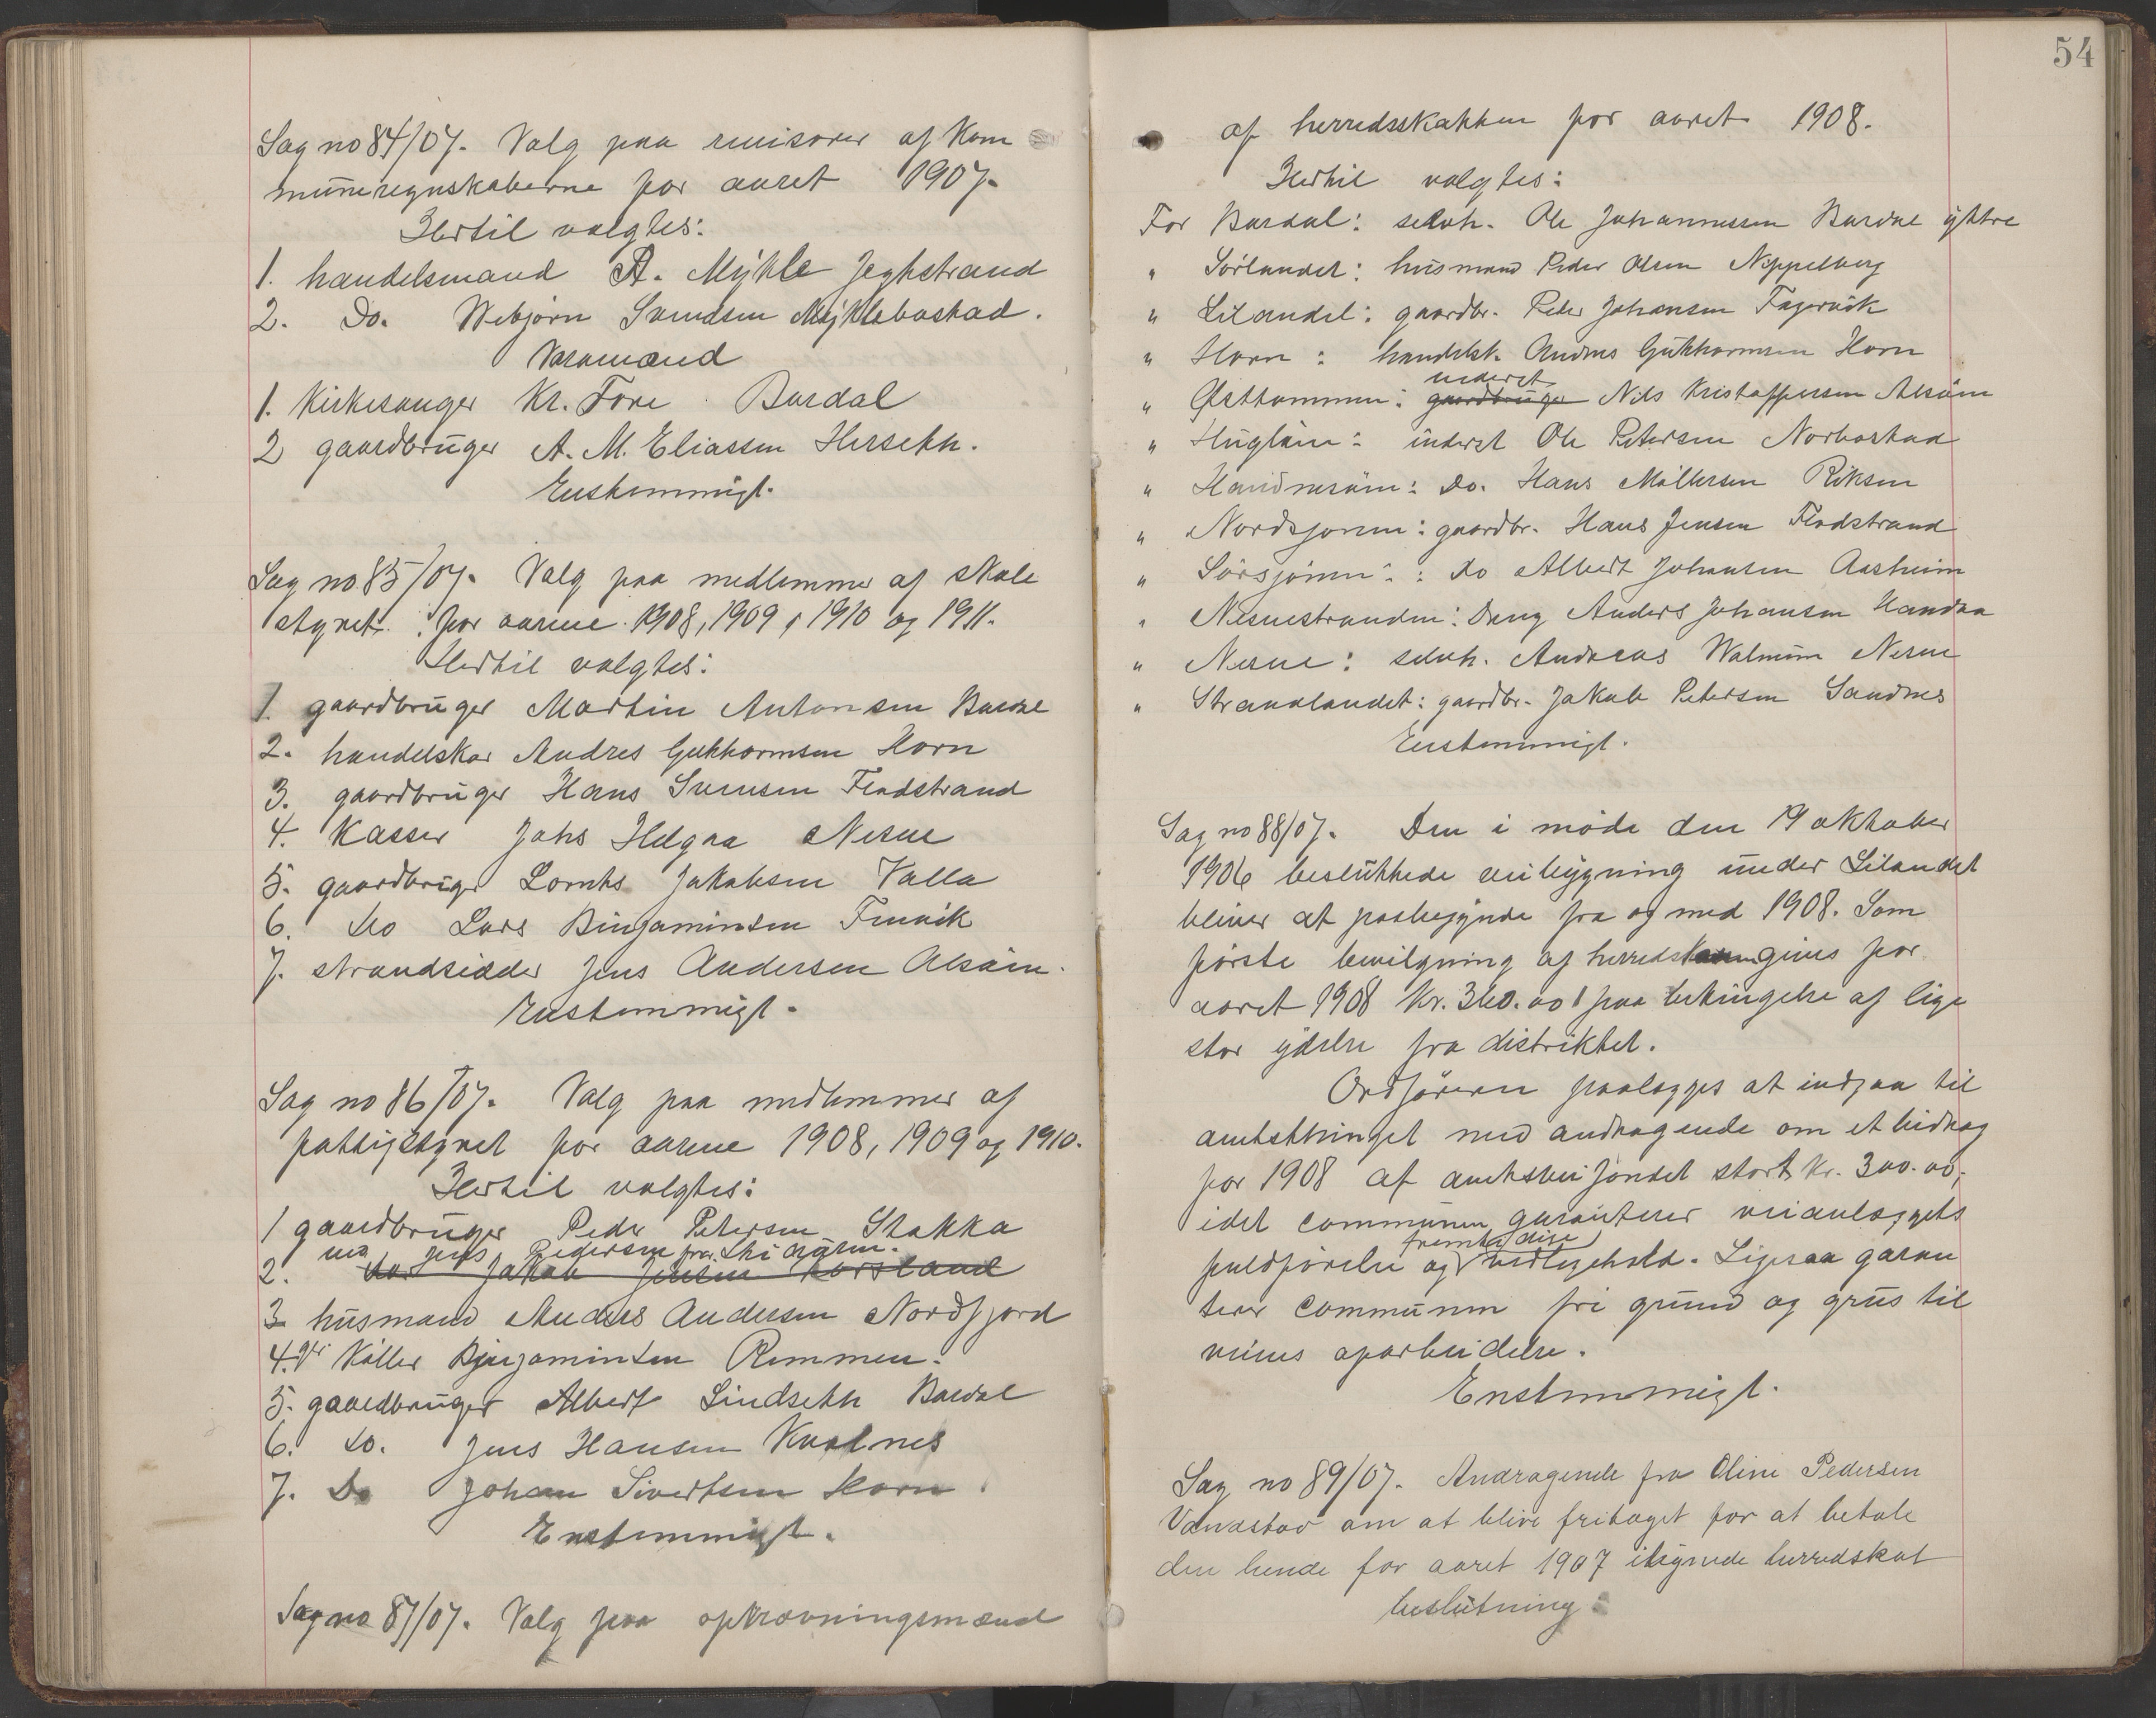 Sag no 84/07. Valg paa revisorer af Kom
muneregnskaberne for aaret 1907.
Hertil valgtes:
1. handelsmand A. Myhle Jeghstrand
2. Do. Webjørn Svendsen Myklebostad.
Varamænd
1. Kirkesanger Kr. Fore Bardal
2 gaardbruger A. M. Eliassen Herseth.
Enstemmigt.
Sag no 85/07. Valg paa medlemmer af skole
styret for aarene 1908, 1909, 1910 og 1911.
Hertil valgtes:
1. gaardbruger Martin Antonsen Bardal
2. handelskar Andres Guthormsen Horn
3. gaardbruger Hans Svensen Fladstrand
4. Kasser Johs Helgaa Nesne
5. gaardbruger Lornts Jakobsen Valla
6. do Lars Binjaminsen Finvik
7. strandsidder Jens Andersen Alsøien.
Enstemmigt.
Sag no 86/07. Valg paa medlemmer af
fattigstyret for aarene 1908, 1909 og 1910.
Hertil valgtes:
1 gaardbruger Peder Petersen Stokka
Jens Pedersen fra
2. do Jakob Jensen Forsland
3 husmand Anders Andersen Nordfjord
4. Binjaminsen Remmen.
5. gaardbruger Albert Lindseth Bardal
6. do. Jens Hansen Kvalnes
7. Do Johan Sivertsen Horn.
Enstemmigt.
Sag no 87/07. Valg paa opkrævningsmænd
54
af herredsskatten for aaret 1908.
Hertil valgtes:
For Bardal: selvh. Ole Johannessen Bardal yttre
" Sørlandet: husmand Peder Olsen Nippelberg
" Lilandet: gaardbr. Peter Johansen Fagervik
" Horn: handelsk. Andres Guthormsen Horn
inderst
" Østtommen: gaardbruger Nils Kristoffersen Alsøien
" Hugløien: inderst Ole Petersen Norbostad
" Handnesøien: Do. Hans Møllersen Riksen
" Nordsjonen: gaardbr. Hans Jensen Fladstrand
" Sørsjonen: do Albert Johansen Aasheim
" Nesnestranden: Dreng Anders Johansen Handaa
" Nesne: selvh. Andreas Walnum Nesne
" Strandlandet: gaardbr. Jakob Petersen Sandnes
Enstemmigt.
Sag no 88/07. Den i møde den 19 oktober
1906 besluttede veibygning under Lilandet
bliver at paabegynde fra og med 1908. Som
første bevilgning af herredskassen gives for
aaret 1908 Kr. 300.00 paa betingelse af lige
stor ydelse fra distriktet.
Ordføreren paalægges at indgaa til
amtsthinget med andragende om et bidrag
for 1908 af amtsveifondet stort Kr. 300.00,
idet communen garanterer veianlæggets
fremtidige
fuldførelse og vedligehold. Ligesaa garan
terer communen fri grund og grus til
veiens oparbeidelse.
Enstemmigt.
Sag no 89/07. Andragende fra Oline Pedersen
Vandstad om at blive fritaget for at betale
den hende for aaret 1907 ilignede herredskat
beslutning: